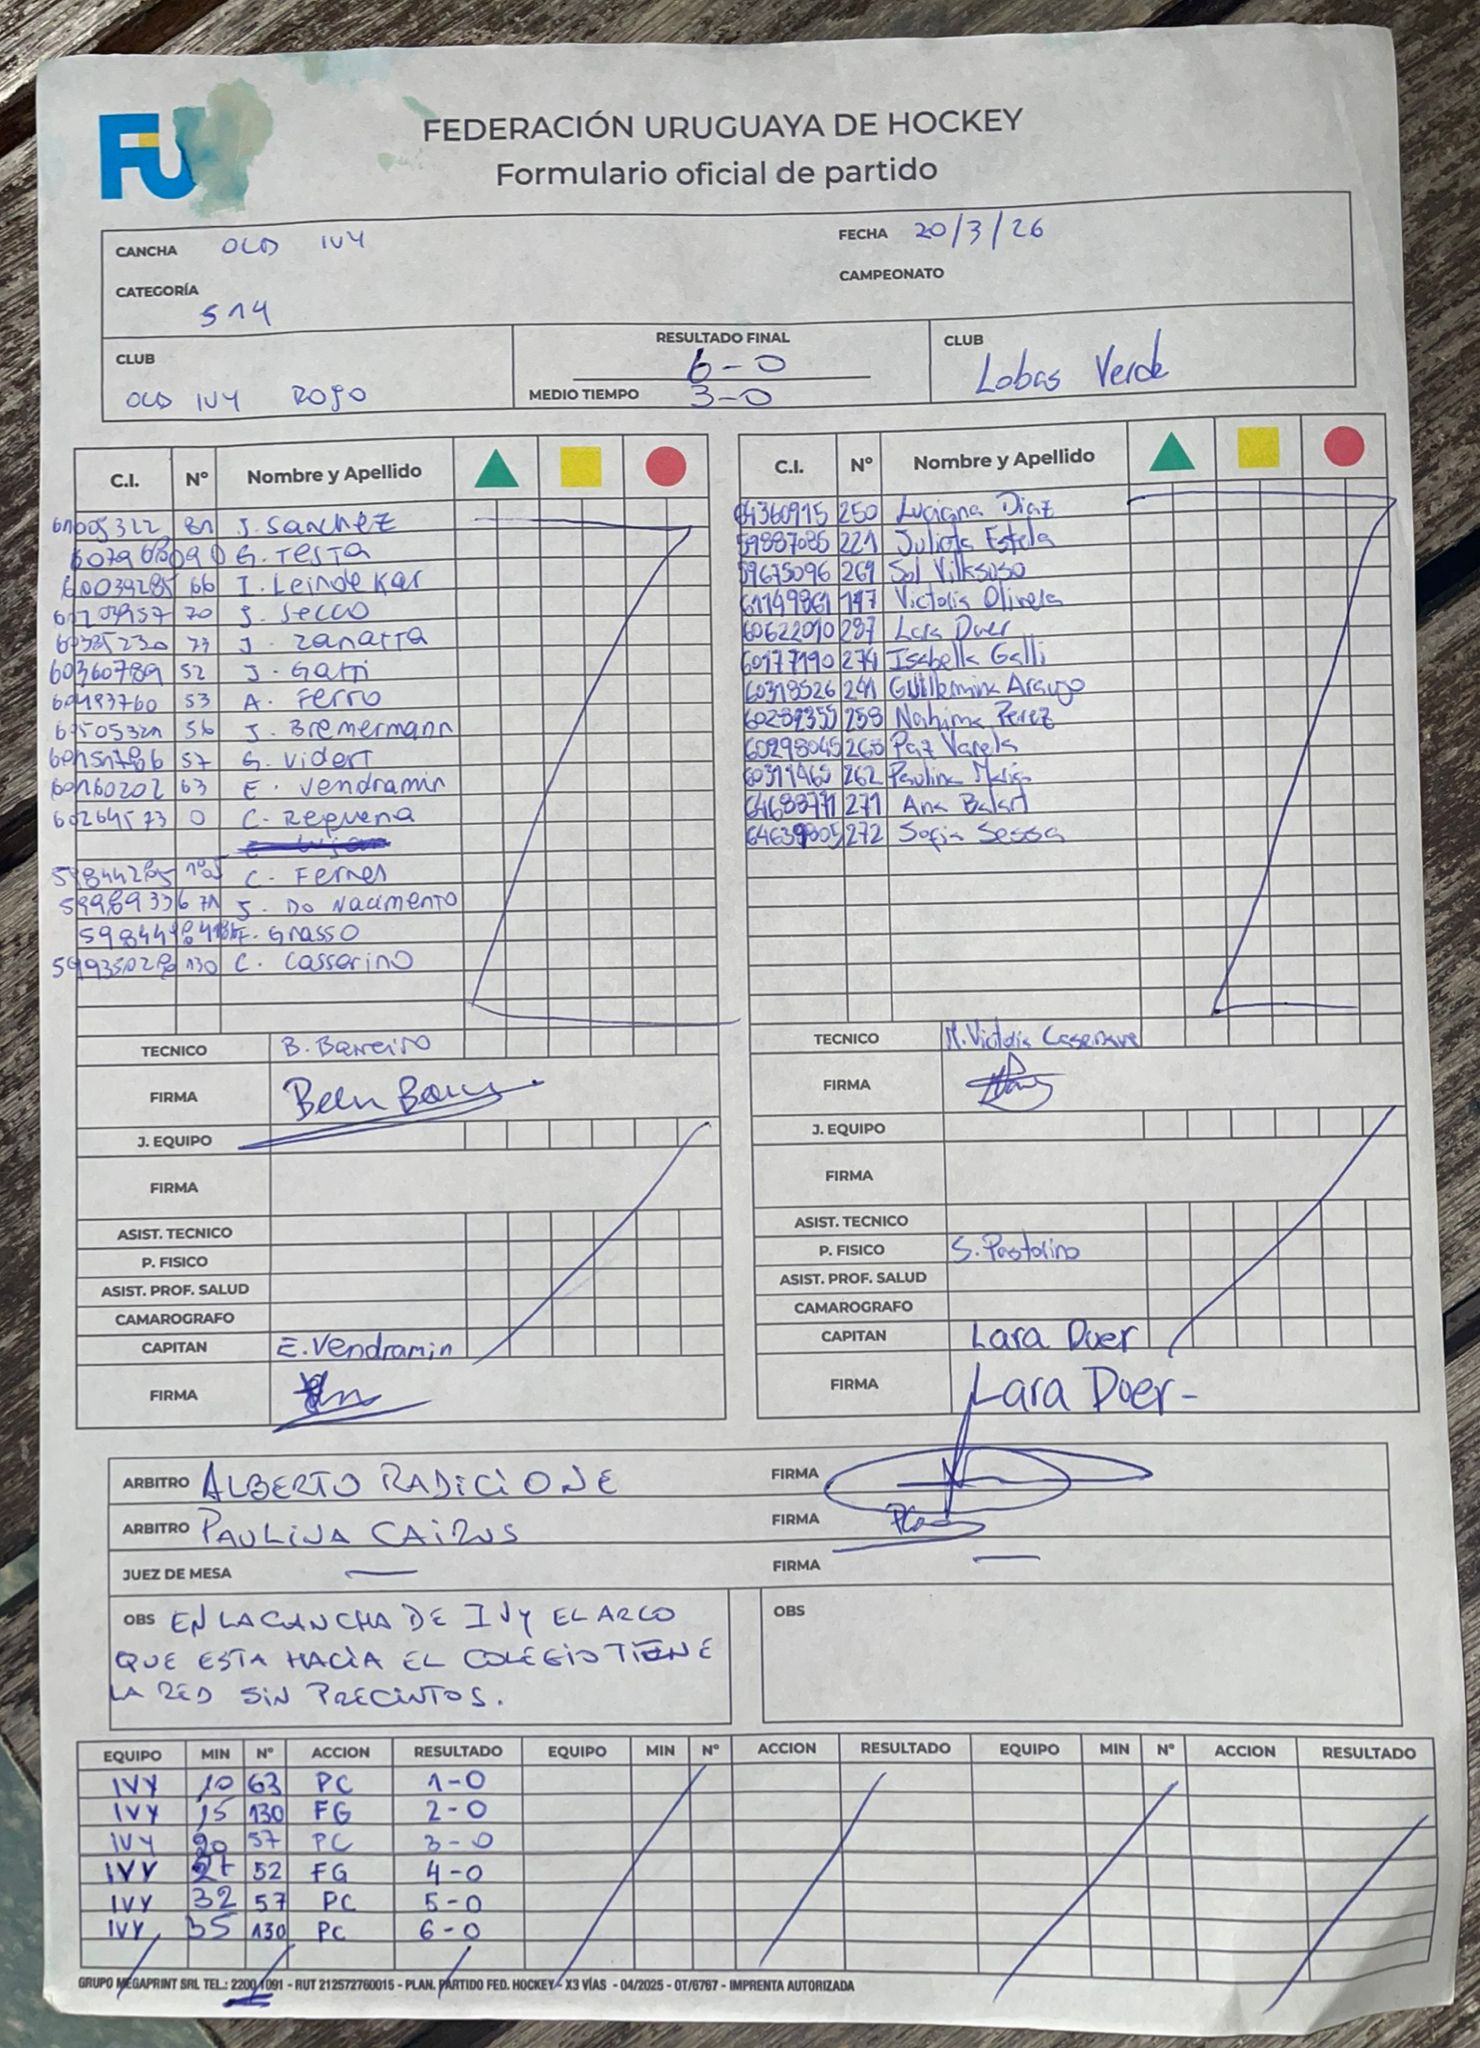 FU
FEDERACIÓN URUGUAYA DE HOCKEY
Formulario oficial de partido
CANCHA OLD IVY
FECHA 20/3/26
CATEGORÍA S14
CAMPEONATO
CLUB OLD IVY ROJO
RESULTADO FINAL 6-0
MEDIO TIEMPO 3-0
CLUB Lobas Verde
C.I. Nº Nombre y Apellido
J. Sanchez
G. Testa
66
70 J. Secco
J. Zanatta
60360789 52 J. Gatti
53 A. Ferro
56 J. Bremermann
57 G. Vidert
60160202 63 E. Vendramin
0 C. Requena
C. Fernes
J. Do Nacimento
F. Grasso
130 C. Casserino
TECNICO B. Barreiro
FIRMA
J. EQUIPO
FIRMA
ASIST. TECNICO
P. FISICO
ASIST. PROF. SALUD
CAMAROGRAFO
CAPITAN E. Vendramin
FIRMA
C.I. Nº Nombre y Apellido
64360915 250 Luciana Diaz
59887085 221 Julieta Estela
59675096 269
61149861 147 Victoria Olivera
60622010 287 Lara Duer
60177190 274 Isabella Galli
60318526 241 Guillermina Araujo
60289355 258 Nahima Perez
60298045 Paz Varela
262 Paulina
64688771 271 Ana
272 Sofia Sessa
TECNICO M. Victoria
FIRMA
J. EQUIPO
FIRMA
ASIST. TECNICO
P. FISICO S. Pastorino
ASIST. PROF. SALUD
CAMAROGRAFO
CAPITAN Lara Duer
FIRMA Lara Duer-
ARBITRO ALBERTO RADICIONE FIRMA
ARBITRO PAULINA CAIRUS FIRMA
JUEZ DE MESA — FIRMA —
OBS EN LA CANCHA DE IVY EL ARCO
QUE ESTA HACIA EL COLEGIO TIENE
LA RED SIN PRECINTOS.
OBS
EQUIPO MIN Nº ACCION RESULTADO EQUIPO MIN Nº ACCION RESULTADO EQUIPO MIN Nº ACCION RESULTADO
IVY 10 63 PC 1-0
IVY 15 130 FG 2-0
IVY 20 57 PC 3-0
IVY 27 52 FG 4-0
IVY 32 57 PC 5-0
IVY 35 130 PC 6-0
GRUPO MEGAPRINT SRL TEL.: 2200 1091 - RUT 212572760015 - PLAN. PARTIDO FED. HOCKEY - X3 VÍAS - 04/2025 - OT/6767 - IMPRENTA AUTORIZADA